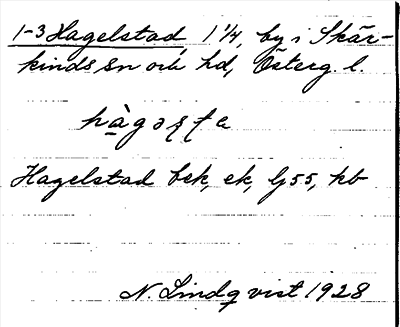 1-3 Hagelstad, 1 1/4, by i Skär-
kinds sn och hd, Österg. l.
hàgəʂʈa
Hagelstad bsk, ek, Gj55, kb
N. Lindqvist 1928